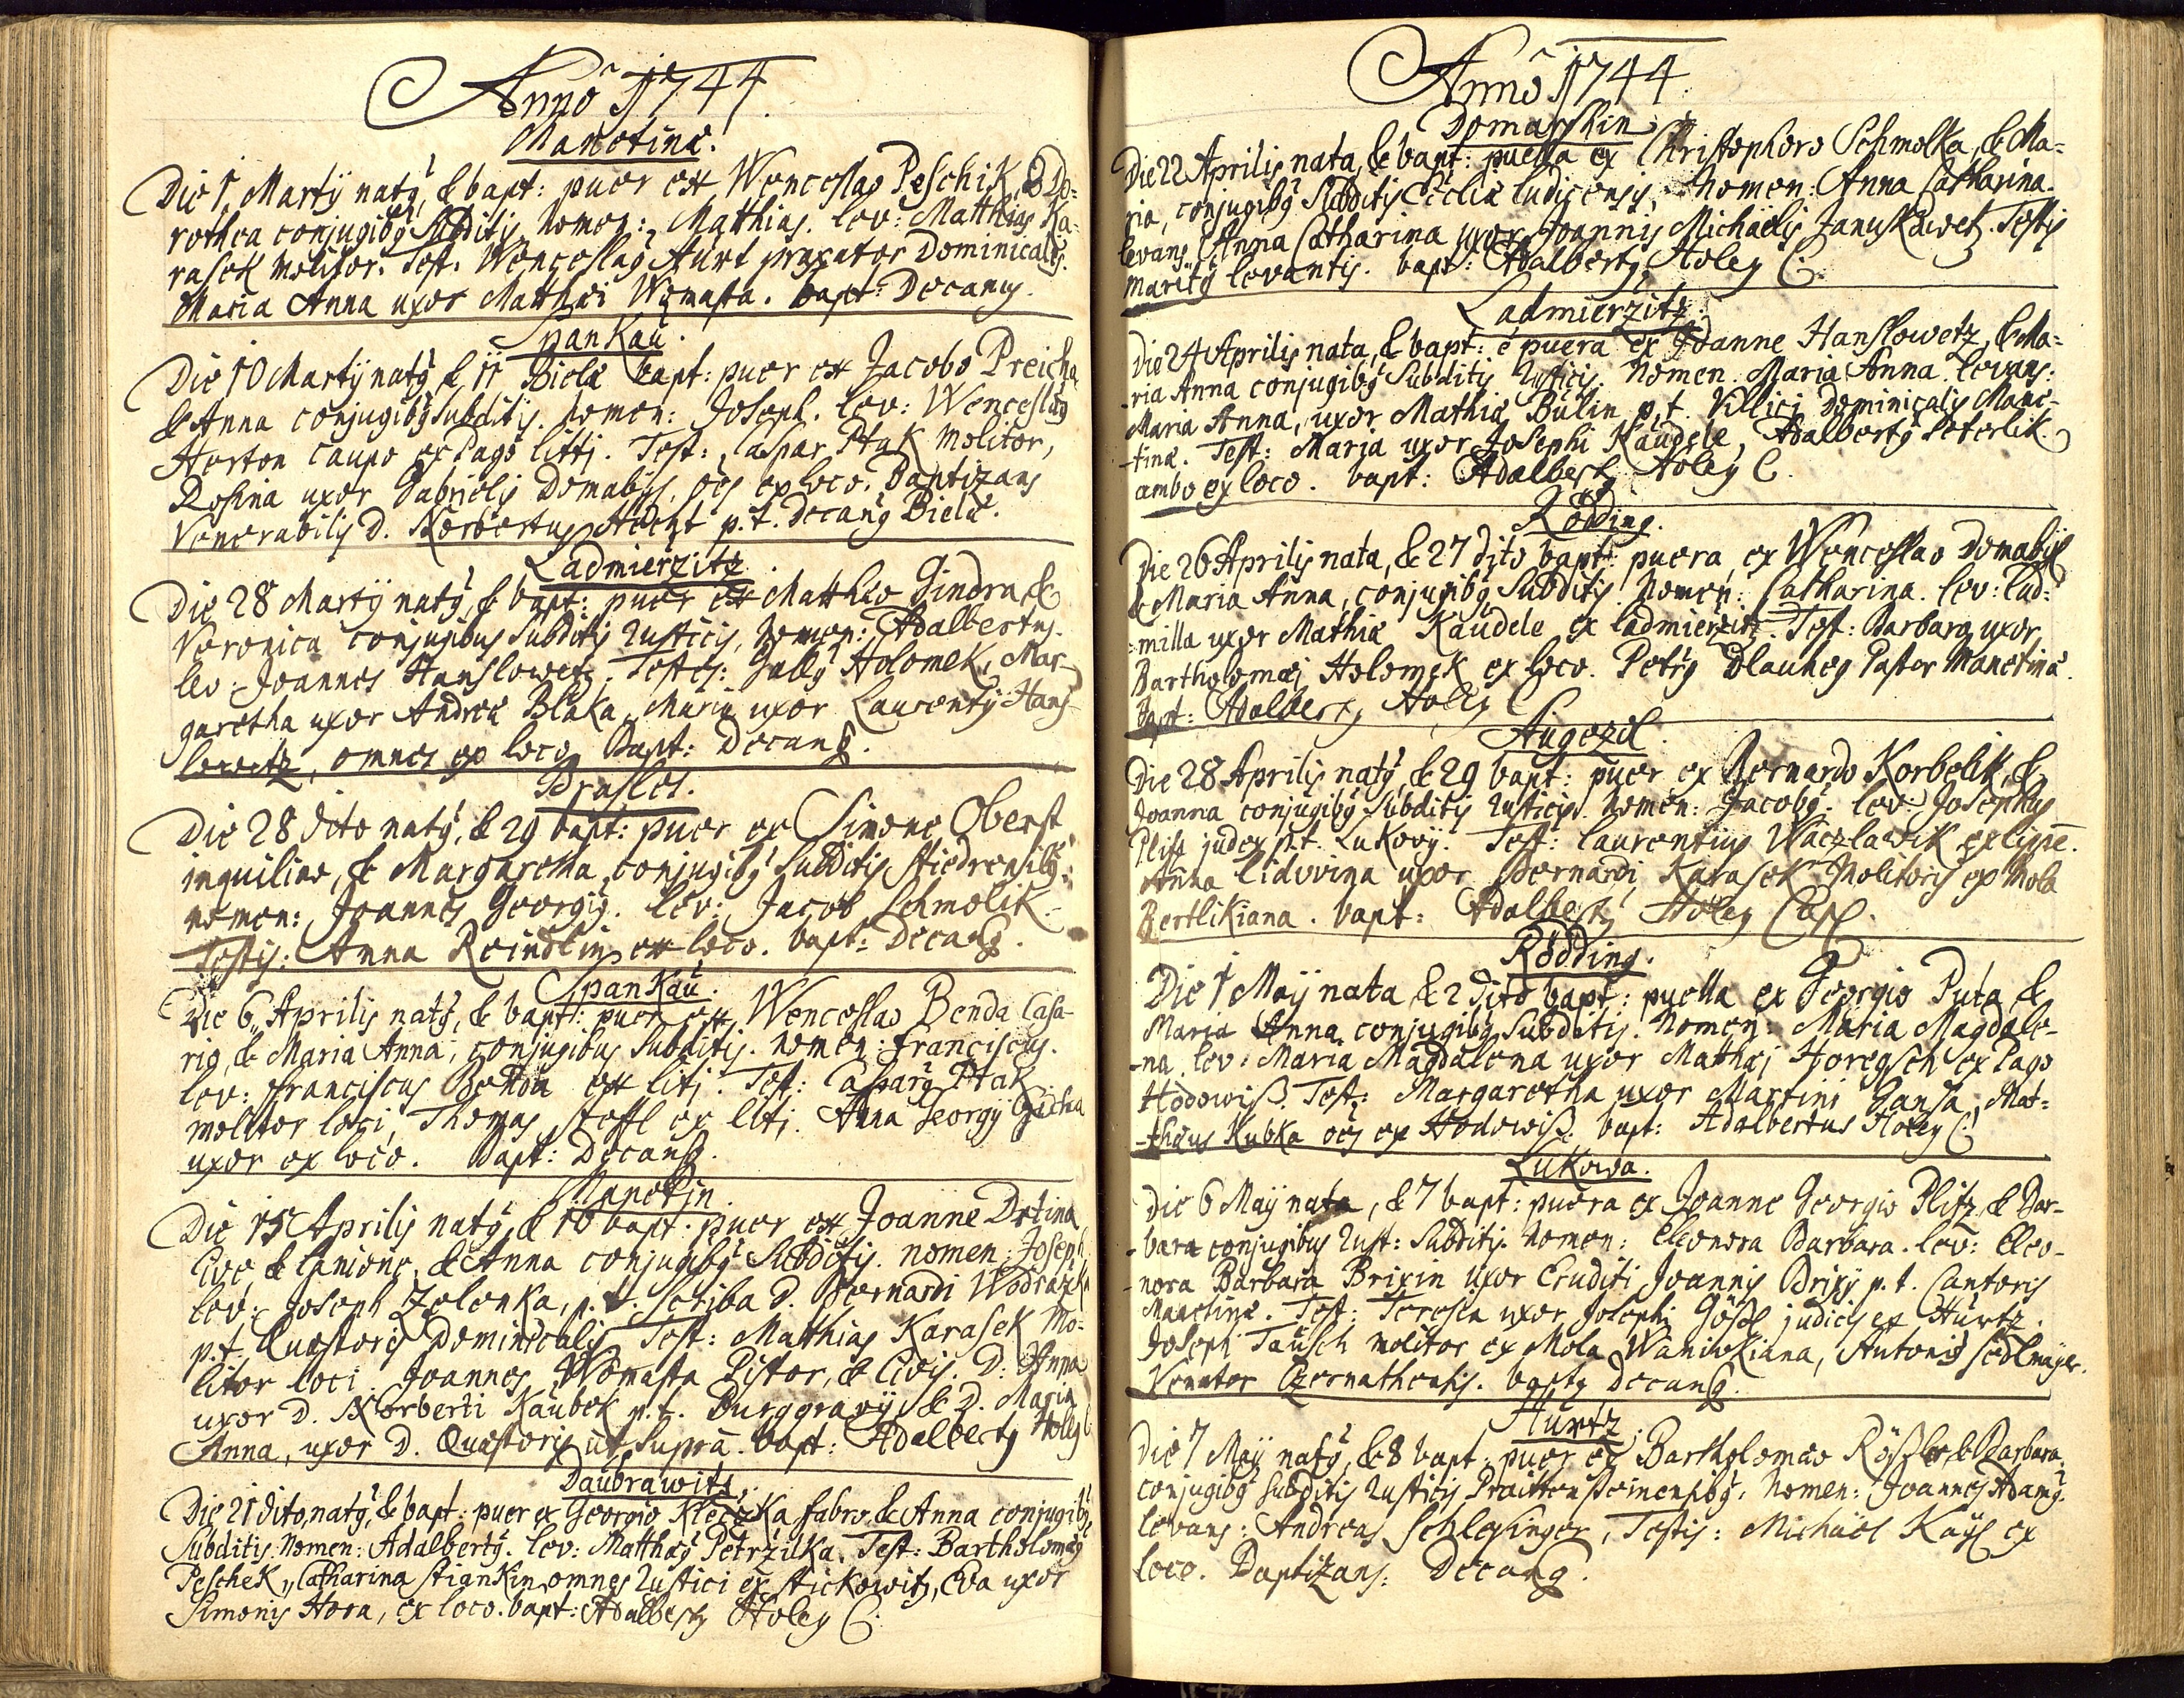 Anno 1744.
Manetina.
Die 1. Martÿ natq, & bapt: puer ex Wenceslao Peschik, & Do-
rothea conjugibq Subditis, Nomen: Matthias. lev: Matthias Ka-
rasek Molitor. Test: Wenceslaq Aurt Dominicalis.
Maria Anna uxor Matthæi Womasta. bapt: Decanus.
Spankau.
Die 10 Martÿ natq, & 11 Bielæ bapt: puer ex Jacobo Preicha
& Anna conjugibq Subditis. Nomen: Joseph. lev: Wenceslaq
Horton Caupo ex Pago littj. Test: Caspar Ptak Molitor,
Rosina uxor Gabrielis Domabÿl, oēs ex loco. Baptizans
Venerabilis D. Norbertus p.t. Decanq Bielæ.
Ladmierzitz.
Die 28 Martÿ natq, & bapt: puer ex Matthæo Jindra, &
Veronica conjugibus Subditis Rusticis, Nomen: Adalbertus.
lev: Joannes Hanslowetz. Testes: Gallq Holomek, Mar-
garetha uxor Andreæ Blaka, Maria uxor Laurentÿ Hans-
lowetz, omnes ex loco. Bapt: Decanq.
Brasles.
Die 28 dito natq, & 29 bapt: puer ex Simone Oberst
inquilino, & Margaretha conjugibq Subditis Stiedrensibq.
nomen: Joannes Georgiq. lev: Jacob Schmolik.
Testis: Anna Reindlin ex loco. bapt: Decanq.
Spankau.
Die 6 Aprilis natq, & bapt: puer ex Wenceslao Benda Casa-
rio, & Maria Anna, conjugibus Subditis. Nomen: Franciscus.
lev: Franciscus Benda ex litj. Test: Casparq Ptak
molitor loci, Thomas Stoffl ex litj. Anna Georgÿ Gicha
uxor ex loco. Bapt: Decanq.
Manetin.
Die 15 Aprilis natq, & 16 bapt: puer ex Joanne Drtina
Cive & Lanione, & Anna conjugibq Subditis. nomen: Joseph
lev: Joseph Zelenka, p.t. Scriba D. Bernardi Wodrazk
p.t. Quæstoris Dominicalis. Test: Matthias Karasek Mo-
litor loci. Joannes Womasta Pistor, & Civis. D: Anna
uxor D. Norberti Kaubek p.t. Burggravÿ & D. Maria
Anna, uxor D. Quæstoris ut Supra. bapt: Adalbertq Holey
Daubrawitz.
Die 21 dito, natq, & bapt: puer ex Georgio Kleczka fabro, & Anna conjugibq
Subditis. Nomen: Adalbertq. lev: Matthæq Petrzilka. Test: Bartholomæq
Peschek, Catharina Stiankin, omnes Rustici ex Stickowitz, Eva uxor
Simonis Hora, ex loco. bapt: Adalbertq Holey C.
Anno 1744.
Domaschin
Die 22 Aprilis nata, & bapt: puella ex Christophoro Schmolka, & Ma-
ria, conjugibq Subditis Ludicensis. Nomen: Anna Catharina.
levans Anna Catharina uxor Joannis Michaelis Januskowetz. Testis
maritq levantis. bapt: Adalbertq Holey C.
Ladmierzitz.
Die 24 Aprilis nata, & bapt: e puera ex Joanne Hanslowetz, & Ma-
ria Anna conjugibq Subditis Rusticis. Nomen: Maria Anna. levans:
Maria Anna, uxor Mathiæ Bulin p.t. Villici Dominicalis Mane-
tinæ. Test: Maria uxor Josephi Kaudele, Adalbertq Peterlik
ambo ex loco. bapt: Adalbertq Holey C.
Rödding.
Die 26 Aprilis nata, & 27 dito bapt: puera ex Wenceslao Domabÿl
& Maria Anna, conjugibq Subditis. Nomen: Catharina. lev: Lud-
milla uxor Mathiæ Kaudele ex Ladmierzitz. Test: Barbara uxor
Bartholomæj Holomek ex loco. Petrq Dlauhey Pastor Manetinæ.
bapt: Adalbertq Holey C
Augezd.
Die 28 Aprilis natq, & 29 bapt: puer ex Bernardo Korbelik, &
Joanna conjugibq Subditis Rusticis. Nomen: Jacobq. lev: Josephus
Plitz judex p.t. Lukovÿ. Test: Laurentius Waczlawik ex
Anna Lidwina uxor Bernardi Karasek Molitoris ex Mola
Bertlikiana. bapt: Adalbertq Holey Capl.
Rödding.
Die 1 Maÿ nata & 2 dito bapt: puella ex Georgio Puta, &
Maria Anna, conjugibq Subditis. Nomen: Maria Magdale-
na. lev: Maria Magdalena uxor Matthæj Horegsch ex Pago
Hodowiß. Test: Margaretha uxor Martini Gansa, Mat-
thæus Kubka oēs ex Hodowiß. bapt: Adalbertus Holey C.
Lukowa.
Die 6 Maÿ nata, & 7 bapt: puera ex Joanne Georgio Plitz, & Bar-
bara conjugibus Rust: Subditis. Nomen: Eleonora Barbara. lev: Eleo-
nora Barbara Brixin uxor Eruditi Joannis Brixÿ p.t. Cantoris
Manetinæ. Test: Teresia uxor Josephi Gößl judicis ex Hurtz.
Joseph Tausch molitor ex Mola Waniwkiana, Antoniq Sedlmayer
Venator Czernathensis. baptz Decanq.
Hurtz.
Die 7 Maÿ natq, & 8 bapt: puer ex Bartholomæo Rößler, & Barbara
conjugibq Subditis Rusticis Praittensteinensibq. Nomen: Joannes Adamq.
levans: Andreas Schlesinger, Testis: Michael Kaÿl ex
loco. Baptizans: Decanq.